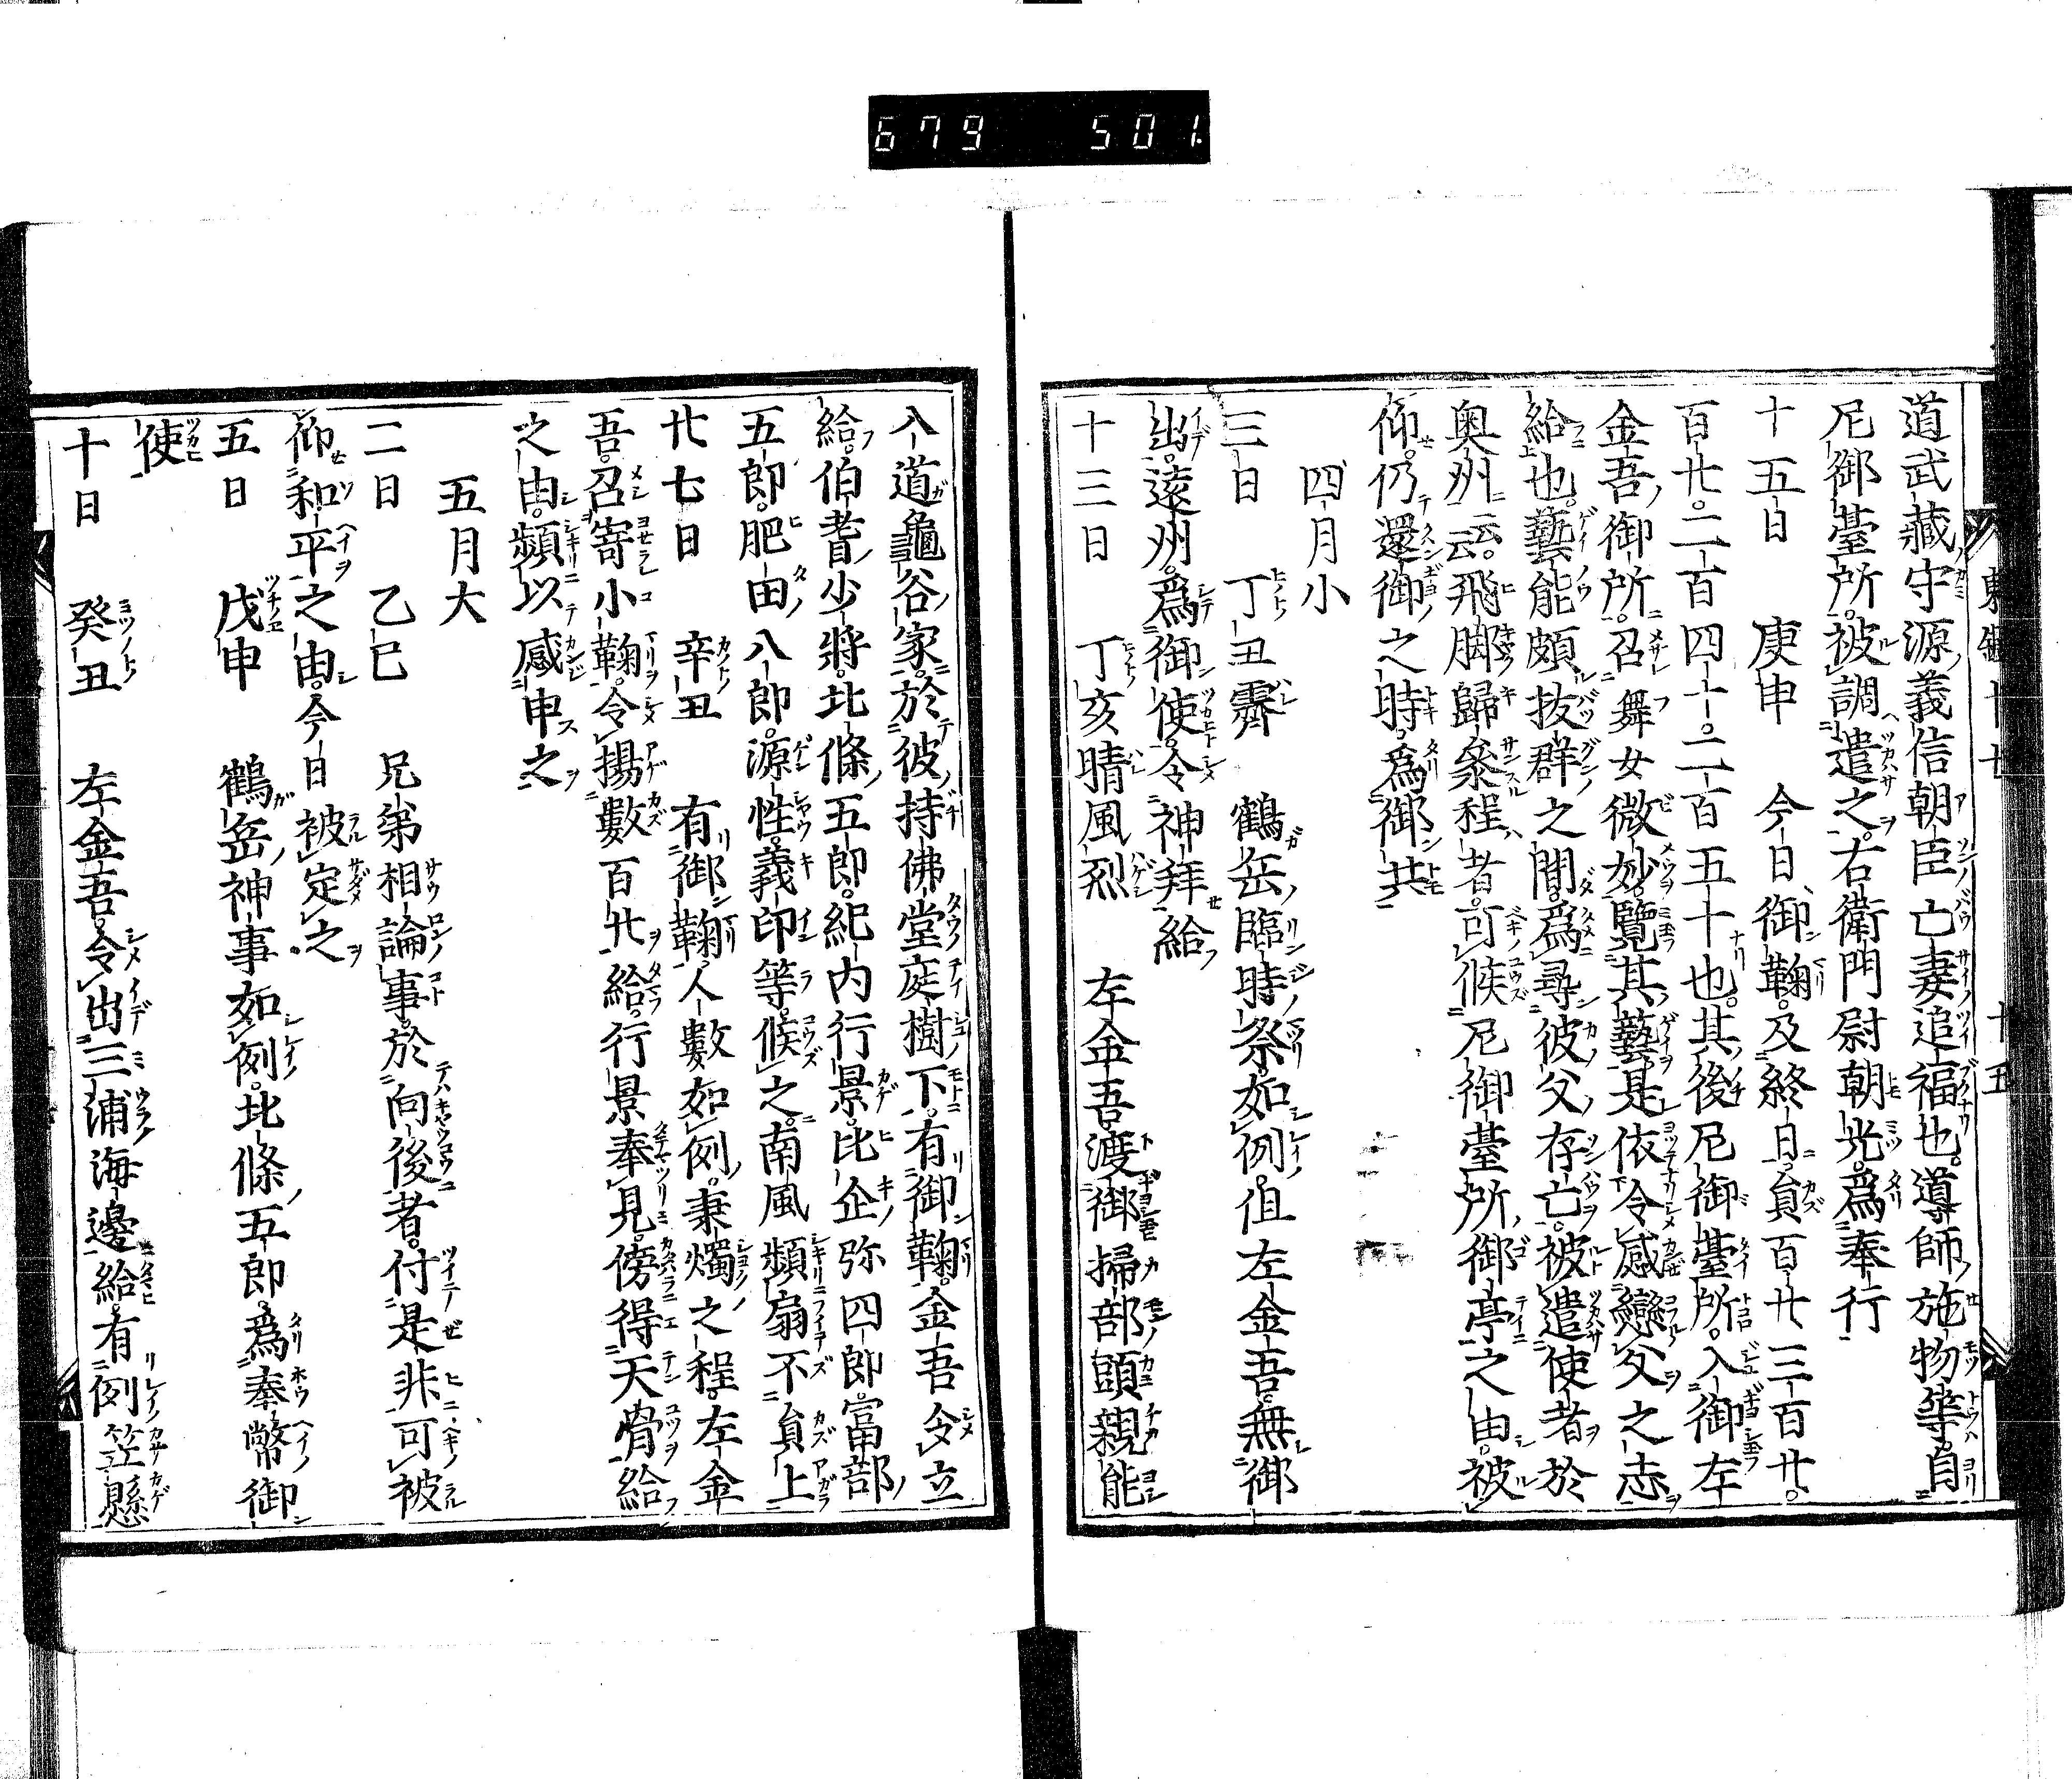 679 501
道武藏守源義信朝臣亡妻追福也。導師施物等。自
尼御臺所。被調遣之。右衛門尉朝光。爲奉行
十五日 庚申 今日御鞠。及終日。員百廿三百廿。
百廿。二百四十。二百五十也。其後尼御臺所。入御左
金吾御所。召舞女微妙。覽其藝。是依令感戀父之志
給也。藝能頗拔群之間。爲尋彼父存亡。被遣使者於
奥州云云。飛脚歸參程者。可候尼御臺所御亭之由。被
仰。仍還御之時。爲御共
四月小
三日 丁丑霽 鶴岳臨時祭。如例。但左金吾。無御
出。遠州。爲御使。令神拜給
十三日 丁亥晴風烈 左金吾渡御掃部頭親能
入道龜谷家。於彼持佛堂庭樹下。有御鞠。金吾令立
給。伯耆少將。北條五郎。紀内行景。比企弥四郎。富部
五郎。肥田八郎。源性。義印等。候之。南風頻扇不員上
廿七日 辛丑 有御鞠。人數如例。秉燭之程。左金
吾。召寄小鞠。令揚數百廿給。行景奉見。傍得天骨給
之由。頻以感申之
五月大
二日 乙巳 兄弟相論事。於向後者。付是非可被
仰和平之由。今日被定之。
五日 戊申 鶴岳神事如例。北條五郎。爲奉幣御
使
十日 癸丑 左金吾。令出三浦海邊給。有例笠懸